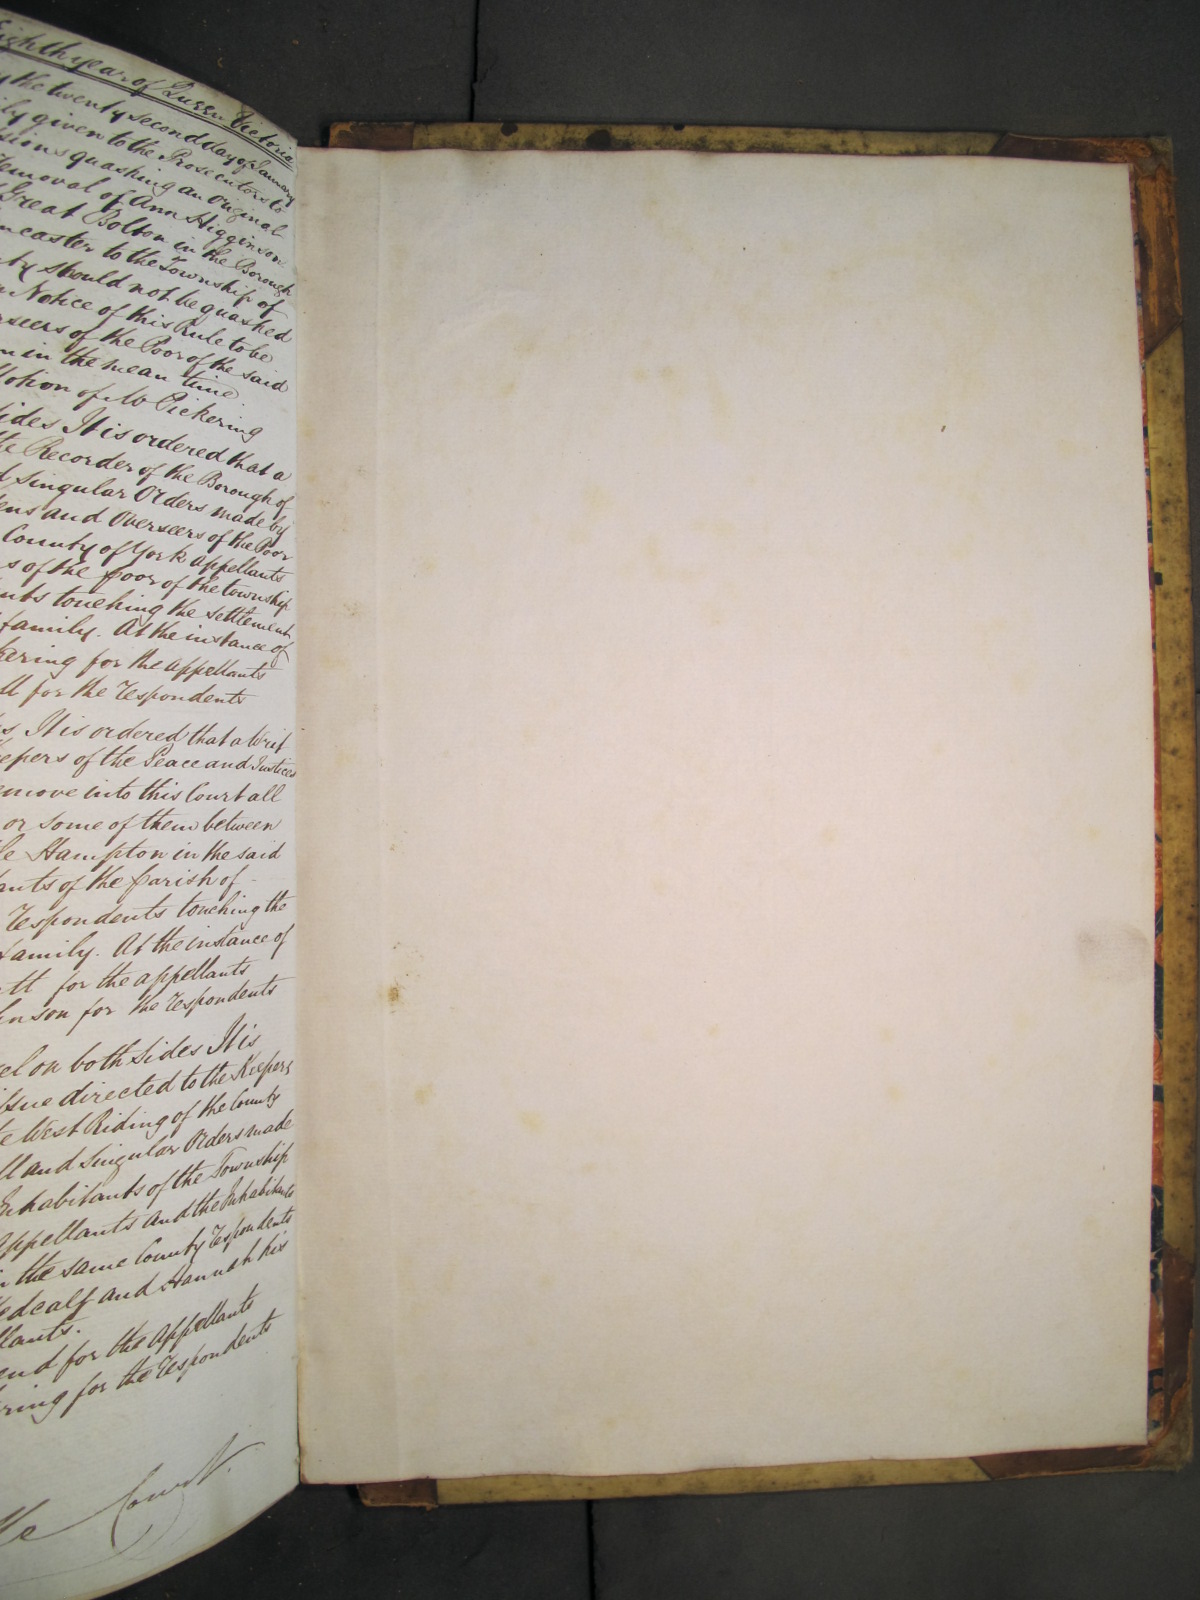 Eighth year of Queen Victoria
the twenty second day of January
given to the Prosecutors to
quashing an original
removal of Ann Higginson
Great Bolton in the Borough
to the Township of
should not be quashed
Notice of this Rule to be
of the Poor of the said
in the mean time
Motion of Mr Pickering
sides It is ordered that a
the Recorder of the Borough of
Singular Orders made by
and Overseers of the Poor
County of York appellants
s of the poor of the township
touching the settlement
family. At the instance of
for the appellants
for the Respondents
It is ordered that a Writ
epers of the Peace and Justices
emove into this Court all
or some of them between
Hampton in the said
ants of the Parish of -
Respondents touching the
family. At the instance of
tt for the appellants
inson for the Respondents
el on both sides It is
issue directed to the Keepers
West Riding of the County
ll and Singular Orders made
Inhabitants of the Township
Appellants and the Inhabitants
in the same County Respondents
edcalf and Hannah his
llants.
end for the Appellants
ring for the Respondents
Court.